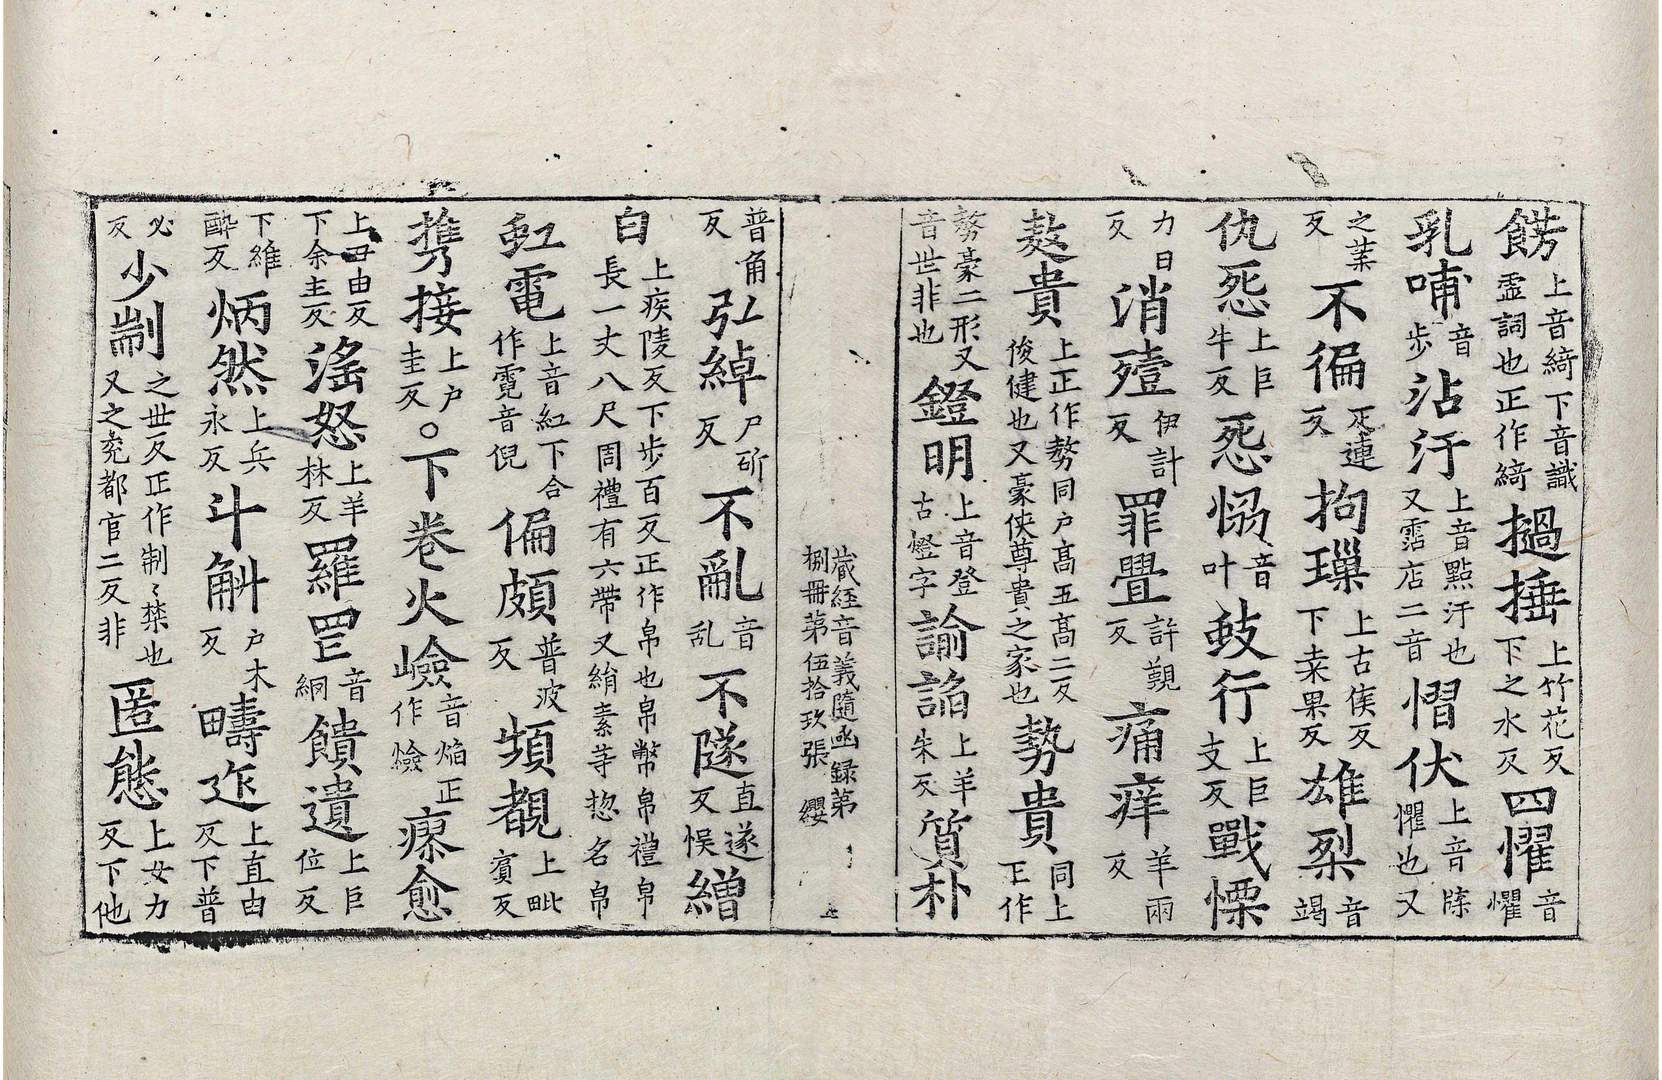 餝上音綺下音識虛詞也正作綺撾捶上竹花反下之水反四懼音懼
乳哺音步沾汙上音點汙也又霑店二音慴伏上音牒懼也又
之葉反不徧疋連反拘璅上古侯反下桒果反雄烈音竭
仇惡上巨牛反惡㥘音叶䟗行上巨支反戰慄
力日反消殪伊計反罪舋許覲反痛痒羊兩反
㪟貴上正作㔠同户髙五髙二反俊健也又豪俠尊貴之家也勢貴同上正作
㔠豪二形又音世非也鐙明上音登古燈字諭諂上羊朱反質朴
藏經音義隨函録第捌冊第伍拾玖張 纓
普角反弘綽尸斫反不亂音乱不隧直遂反悮繒
自上疾陵反下步百反正作帛也帛幣帛禮帛長一丈八尺周禮有六幣又絹素等惣名帛
虹電上音紅下合作霓音倪偏頗普波反頻覩上毗賓反
㩦接上户圭反○下卷火嶮音焰正作燄療愈
上丑由反下余主反滛怒上羊林反羅罡音綱饋遺上巨位反
下維醉反炳然上兵永反斗斛户木反疇迮上直由反下普
必反少剬之世反正作制〻禁也又之兖都官二反非匿態上女力反下他